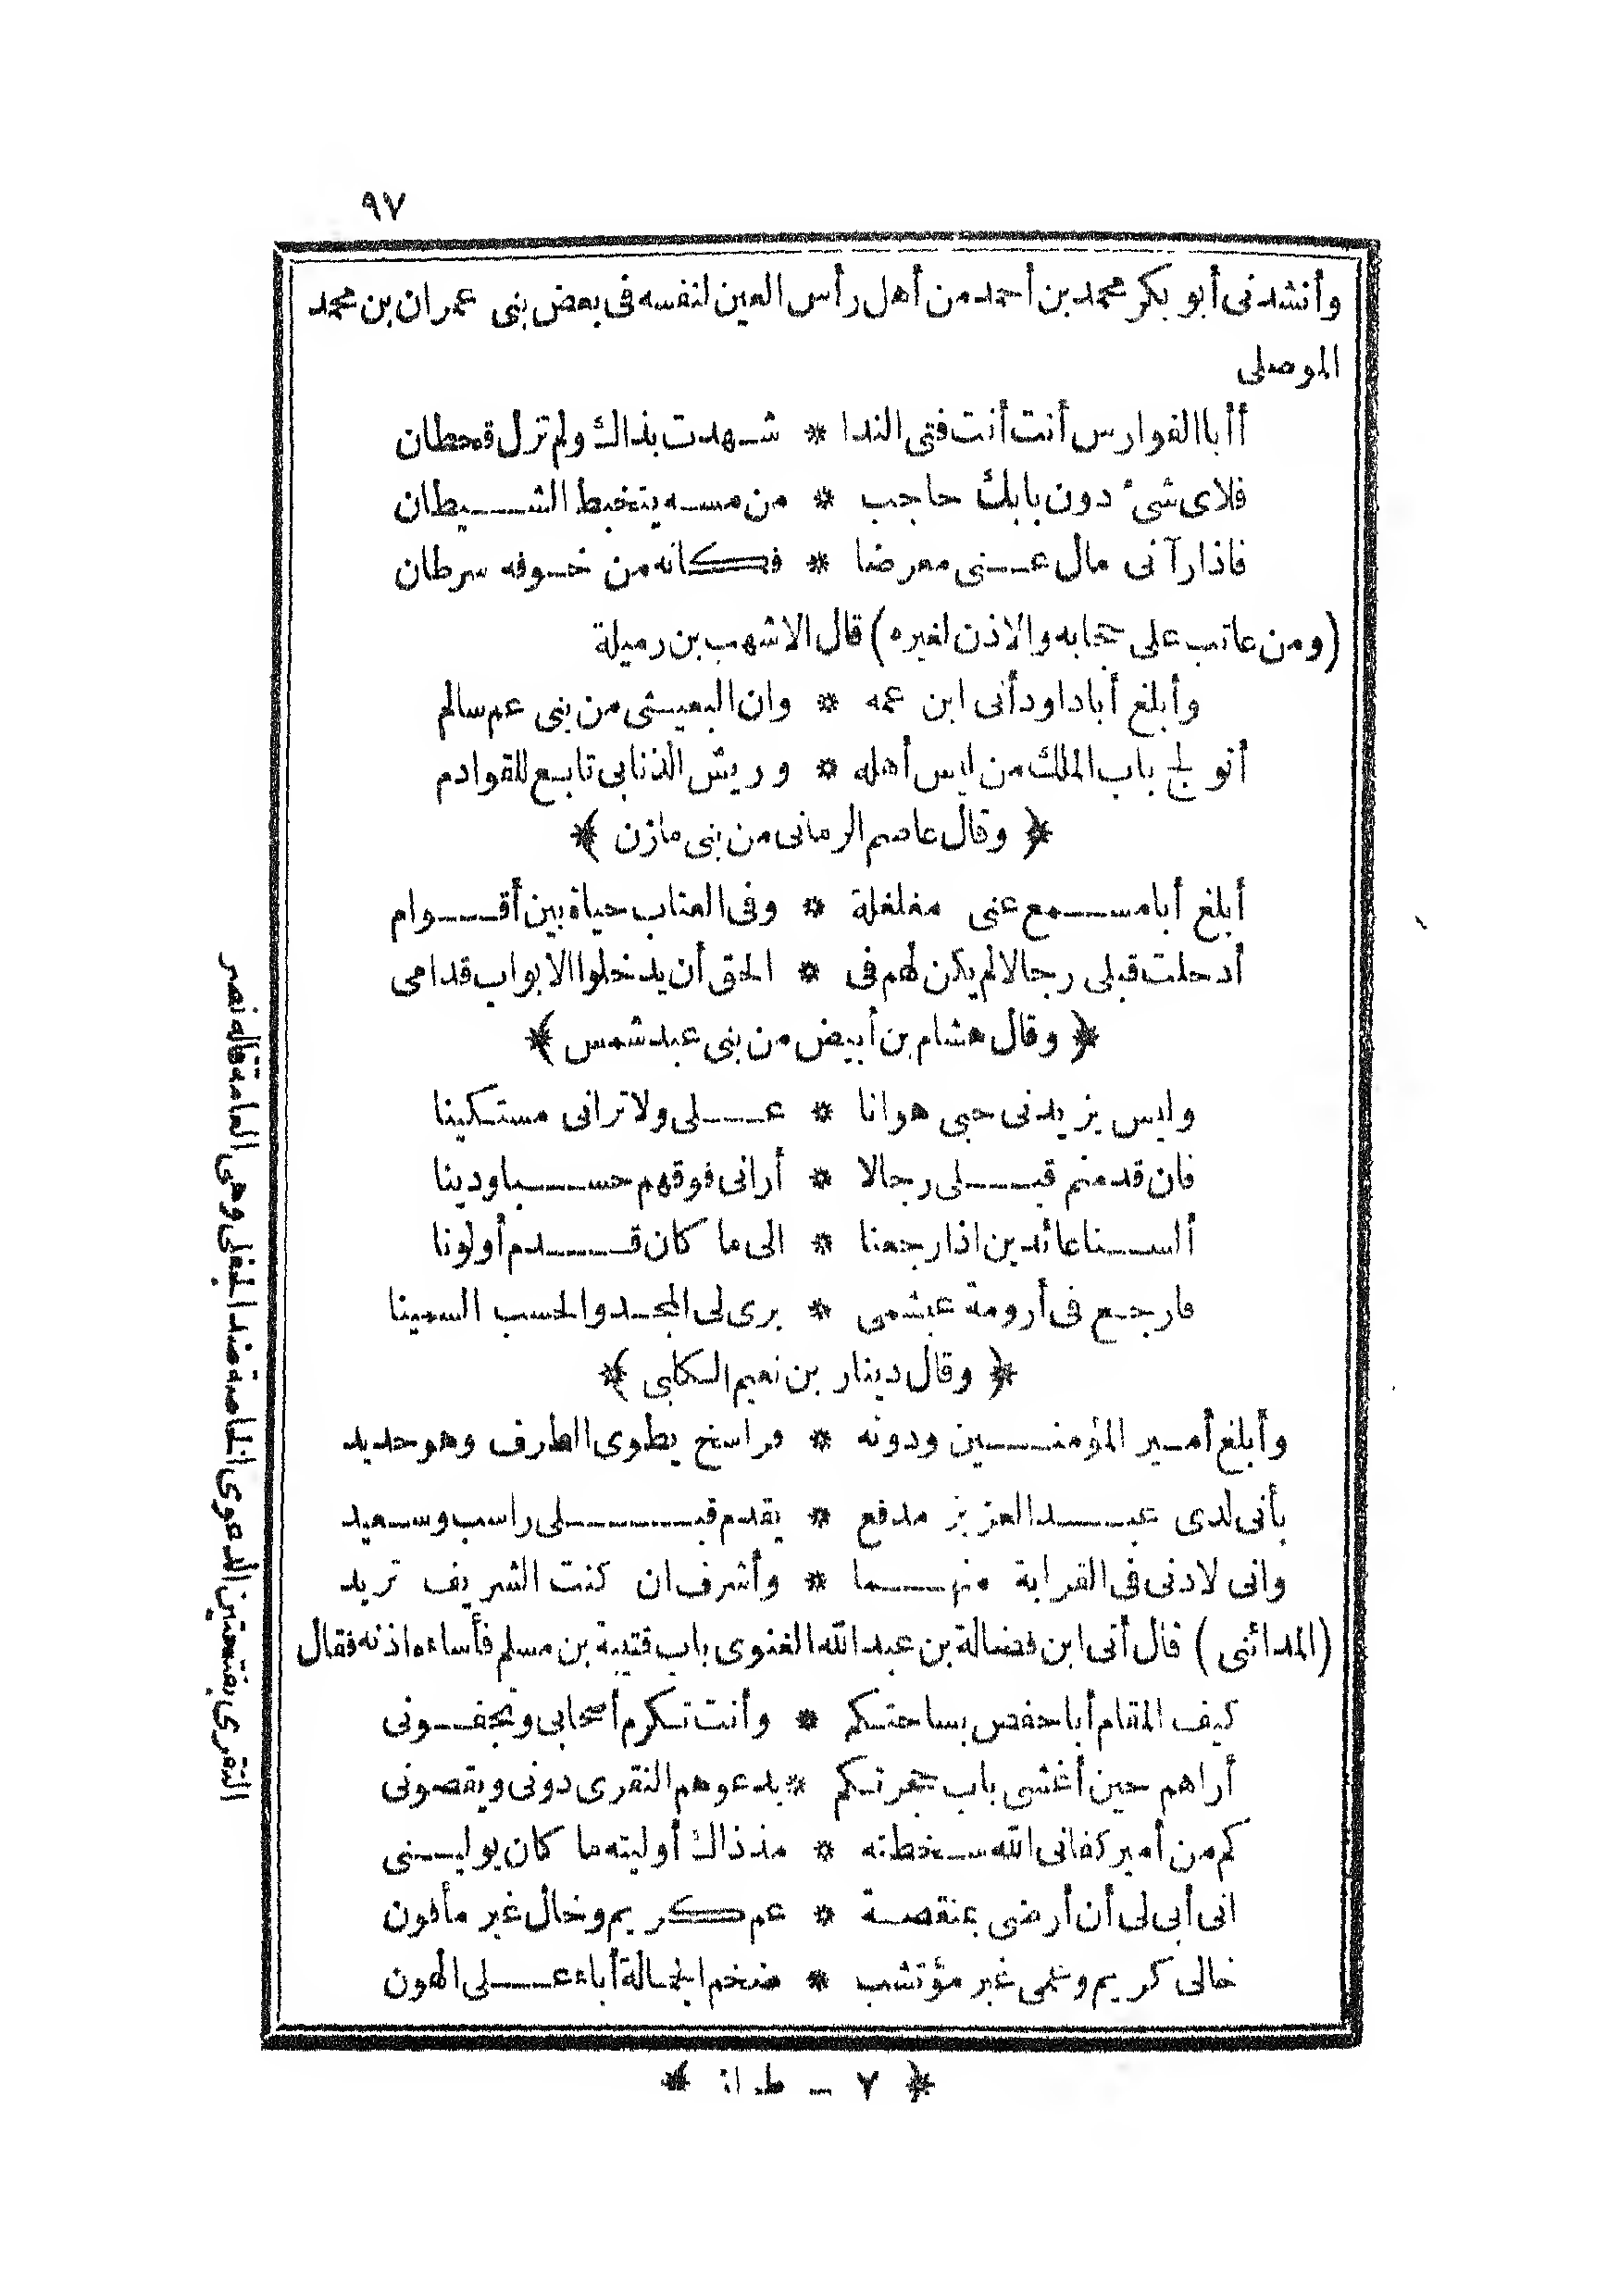 ٩٧
وأنشدنى أبو بكر محمد بن أحمد من أهل رأس العين لنفسه فى بعض بنى عمران بن محمد
الموصلى
أأبا الفوارس أنت أنت فتى الندا * شهدت بذاك ولم تزل قحطان
فلاى شىء دون بابك حاجب * من مسه يتخبط الشيطان
فاذا رآنى مال عنى معرضا * فكانه من خوفه سرطان
(ومن عاتب على حجابه والاذن لغيره) قال الاشهب بن رميلة
وأبلغ أبا داود أنى ابن عمه * وان البعيثى من بنى عم سالم
أتولج باب الملك من ليس أهله * وريش الذنابى تابع للقوادم
﴿ وقال عاصم الرمانى من بنى مازن ﴾
أبلغ أبا مسمع عنى مغلغلة * وفى العتاب حياة بين أقوام
أدخلت قبلى رجالا لم يكن لهم فى * الحق أن يدخلوا الابواب قدامى
﴿ وقال هشام بن أبيض من بنى عبد شمس ﴾
وليس يزيدنى حبى هوانا * على ولا ترانى مستكينا
فان قدمتم قبلى رجالا * أرانى فوقهم حسبا ودينا
ألسنا عائدين اذا رجعنا * الى ما كان قدم أولونا
فارجع فى أرومة عبشمى * برى لى المجد والحسب السمينا
﴿ وقال دينار بن نعيم الكلبى ﴾
وأبلغ أمير المؤمنين ودونه * فراسخ يطوى الطرف وهو حديد
بأنى لدى عبد العزيز مدفع * يقدم قبلى راسب وسعيد
وانى لادنى فى القرابة منهما * وأشرف ان كنت الشريف تريد
(المدائنى) قال أتى ابن فضالة بن عبد الله الغنوى باب قتيبة بن مسلم فأساء اذنه فقال
كيف المقام أبا حفص بساحتكم * وأنت تكرم أصحابى وتجفونى
أراهم حين أغشى باب حجرتكم * يدعوهم النقرى دونى ويقصونى
كم من أمير كفانى الله سخطته * مذ ذاك أوليته ما كان يولينى
انى أبى لى أن أرضى بمنقصة * عم كريم وخال غير مأفون
خالى كريم وعمى غير مؤتشب * ضخم الحمالة أباء على الهون
النقرى بفتحتين الدعوى الخاصة ضد الجفلى وهى العامة قاله نصر
﴿ ٧ – ط. ا: ﴾